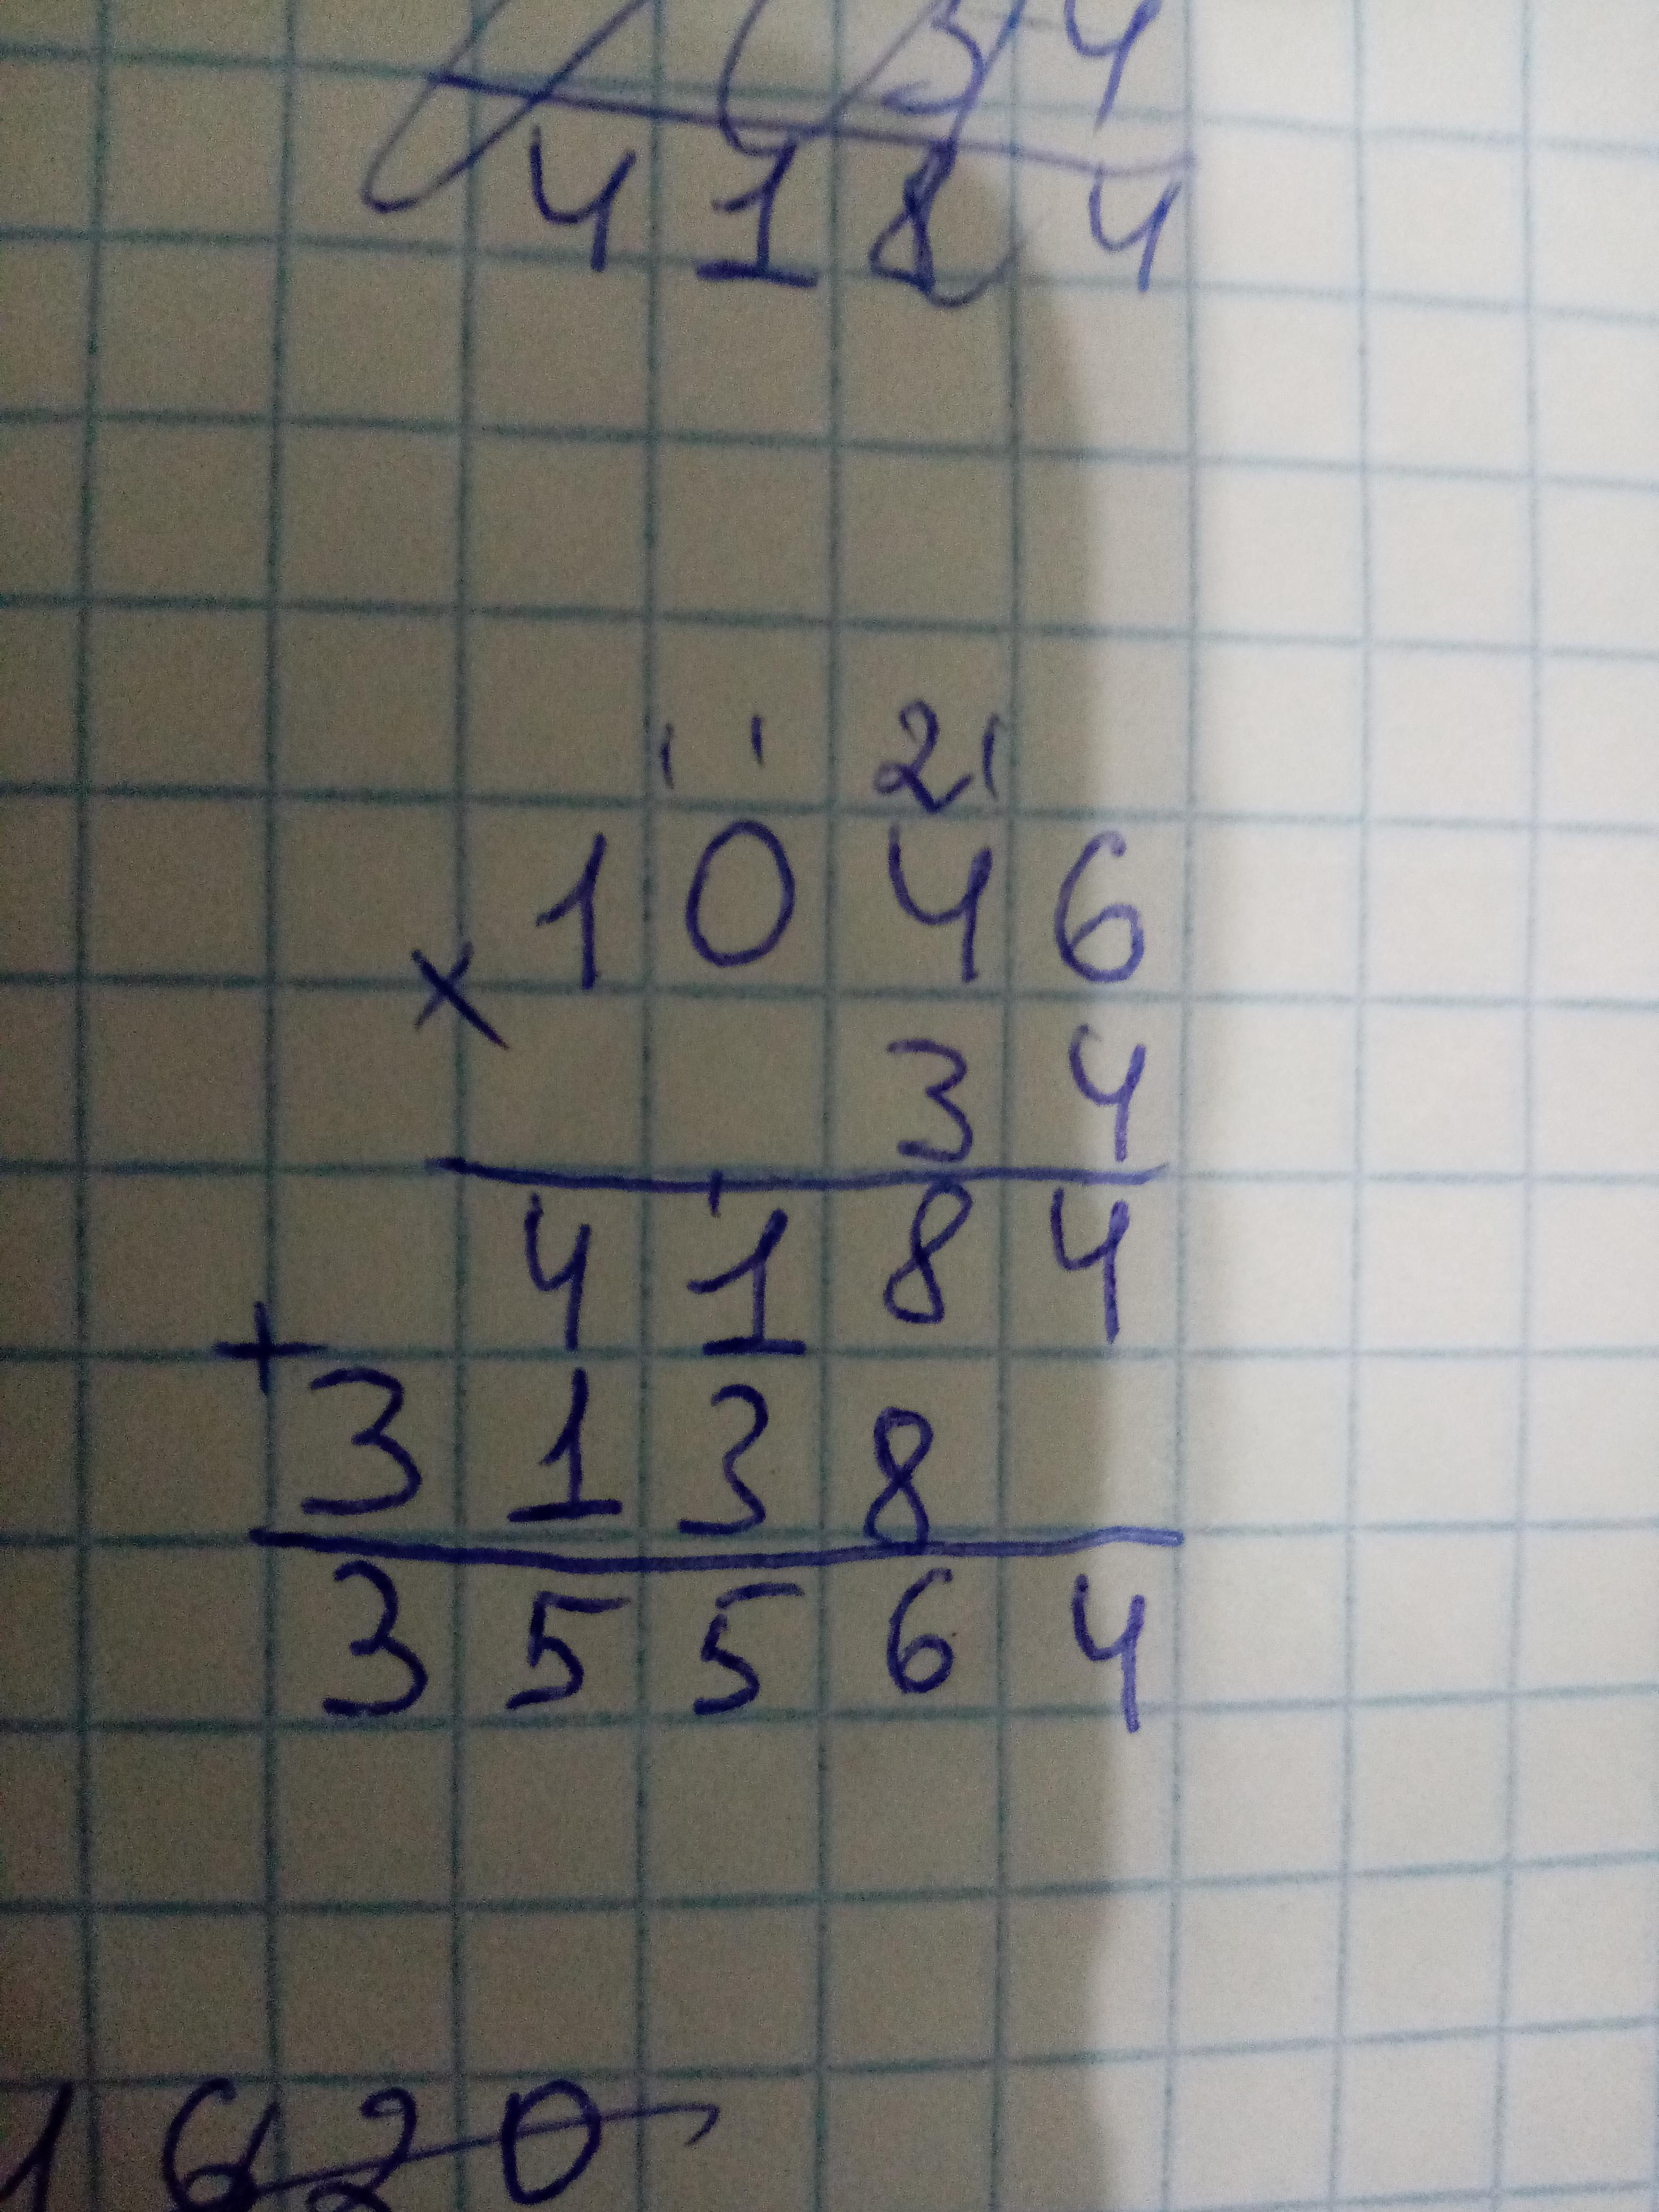 34
4184
11 21
1046
×
34
1
4184
+
3138
35564
1620